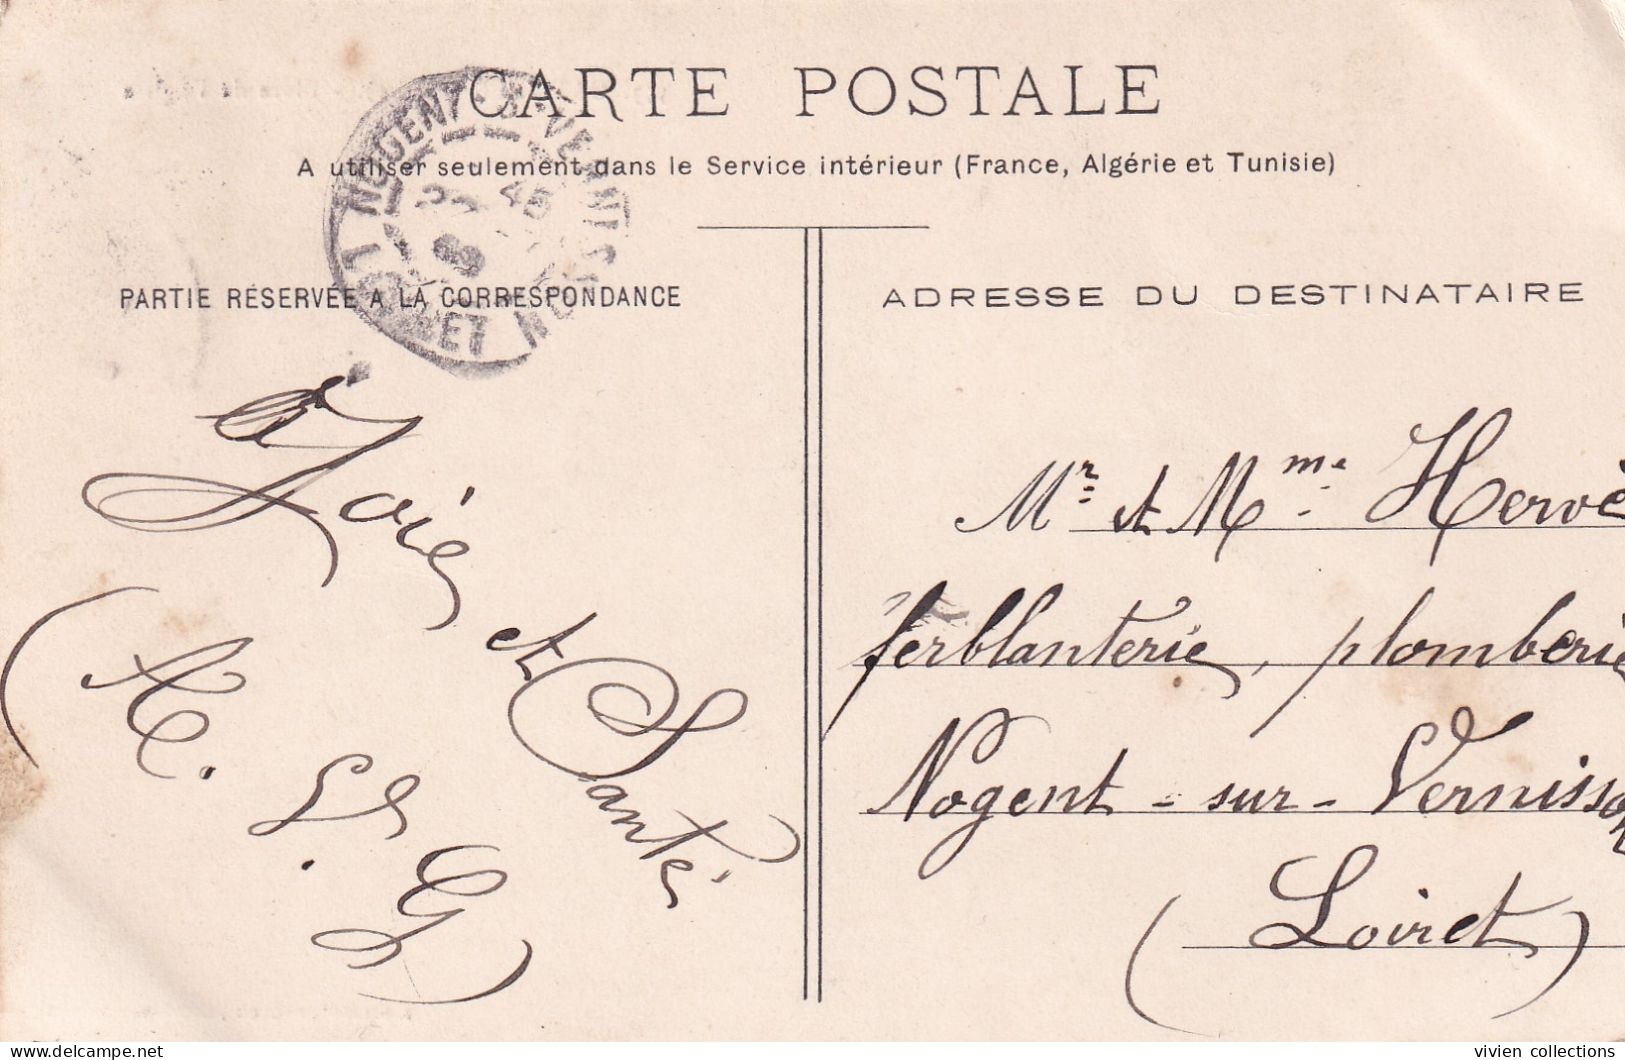 CARTE POSTALE
A utiliser seulement dans le Service intérieur (France, Algérie et Tunisie)
PARTIE RÉSERVÉE A LA CORRESPONDANCE
Joie
et Santé
ADRESSE DU DESTINATAIRE
Mr et Mme Hervé
ferblanterie, plomberie
Nogent - sur - Vernisson
(Loiret)
NOGENT-S-VERNISSON
LOIRET
45
vivien collections